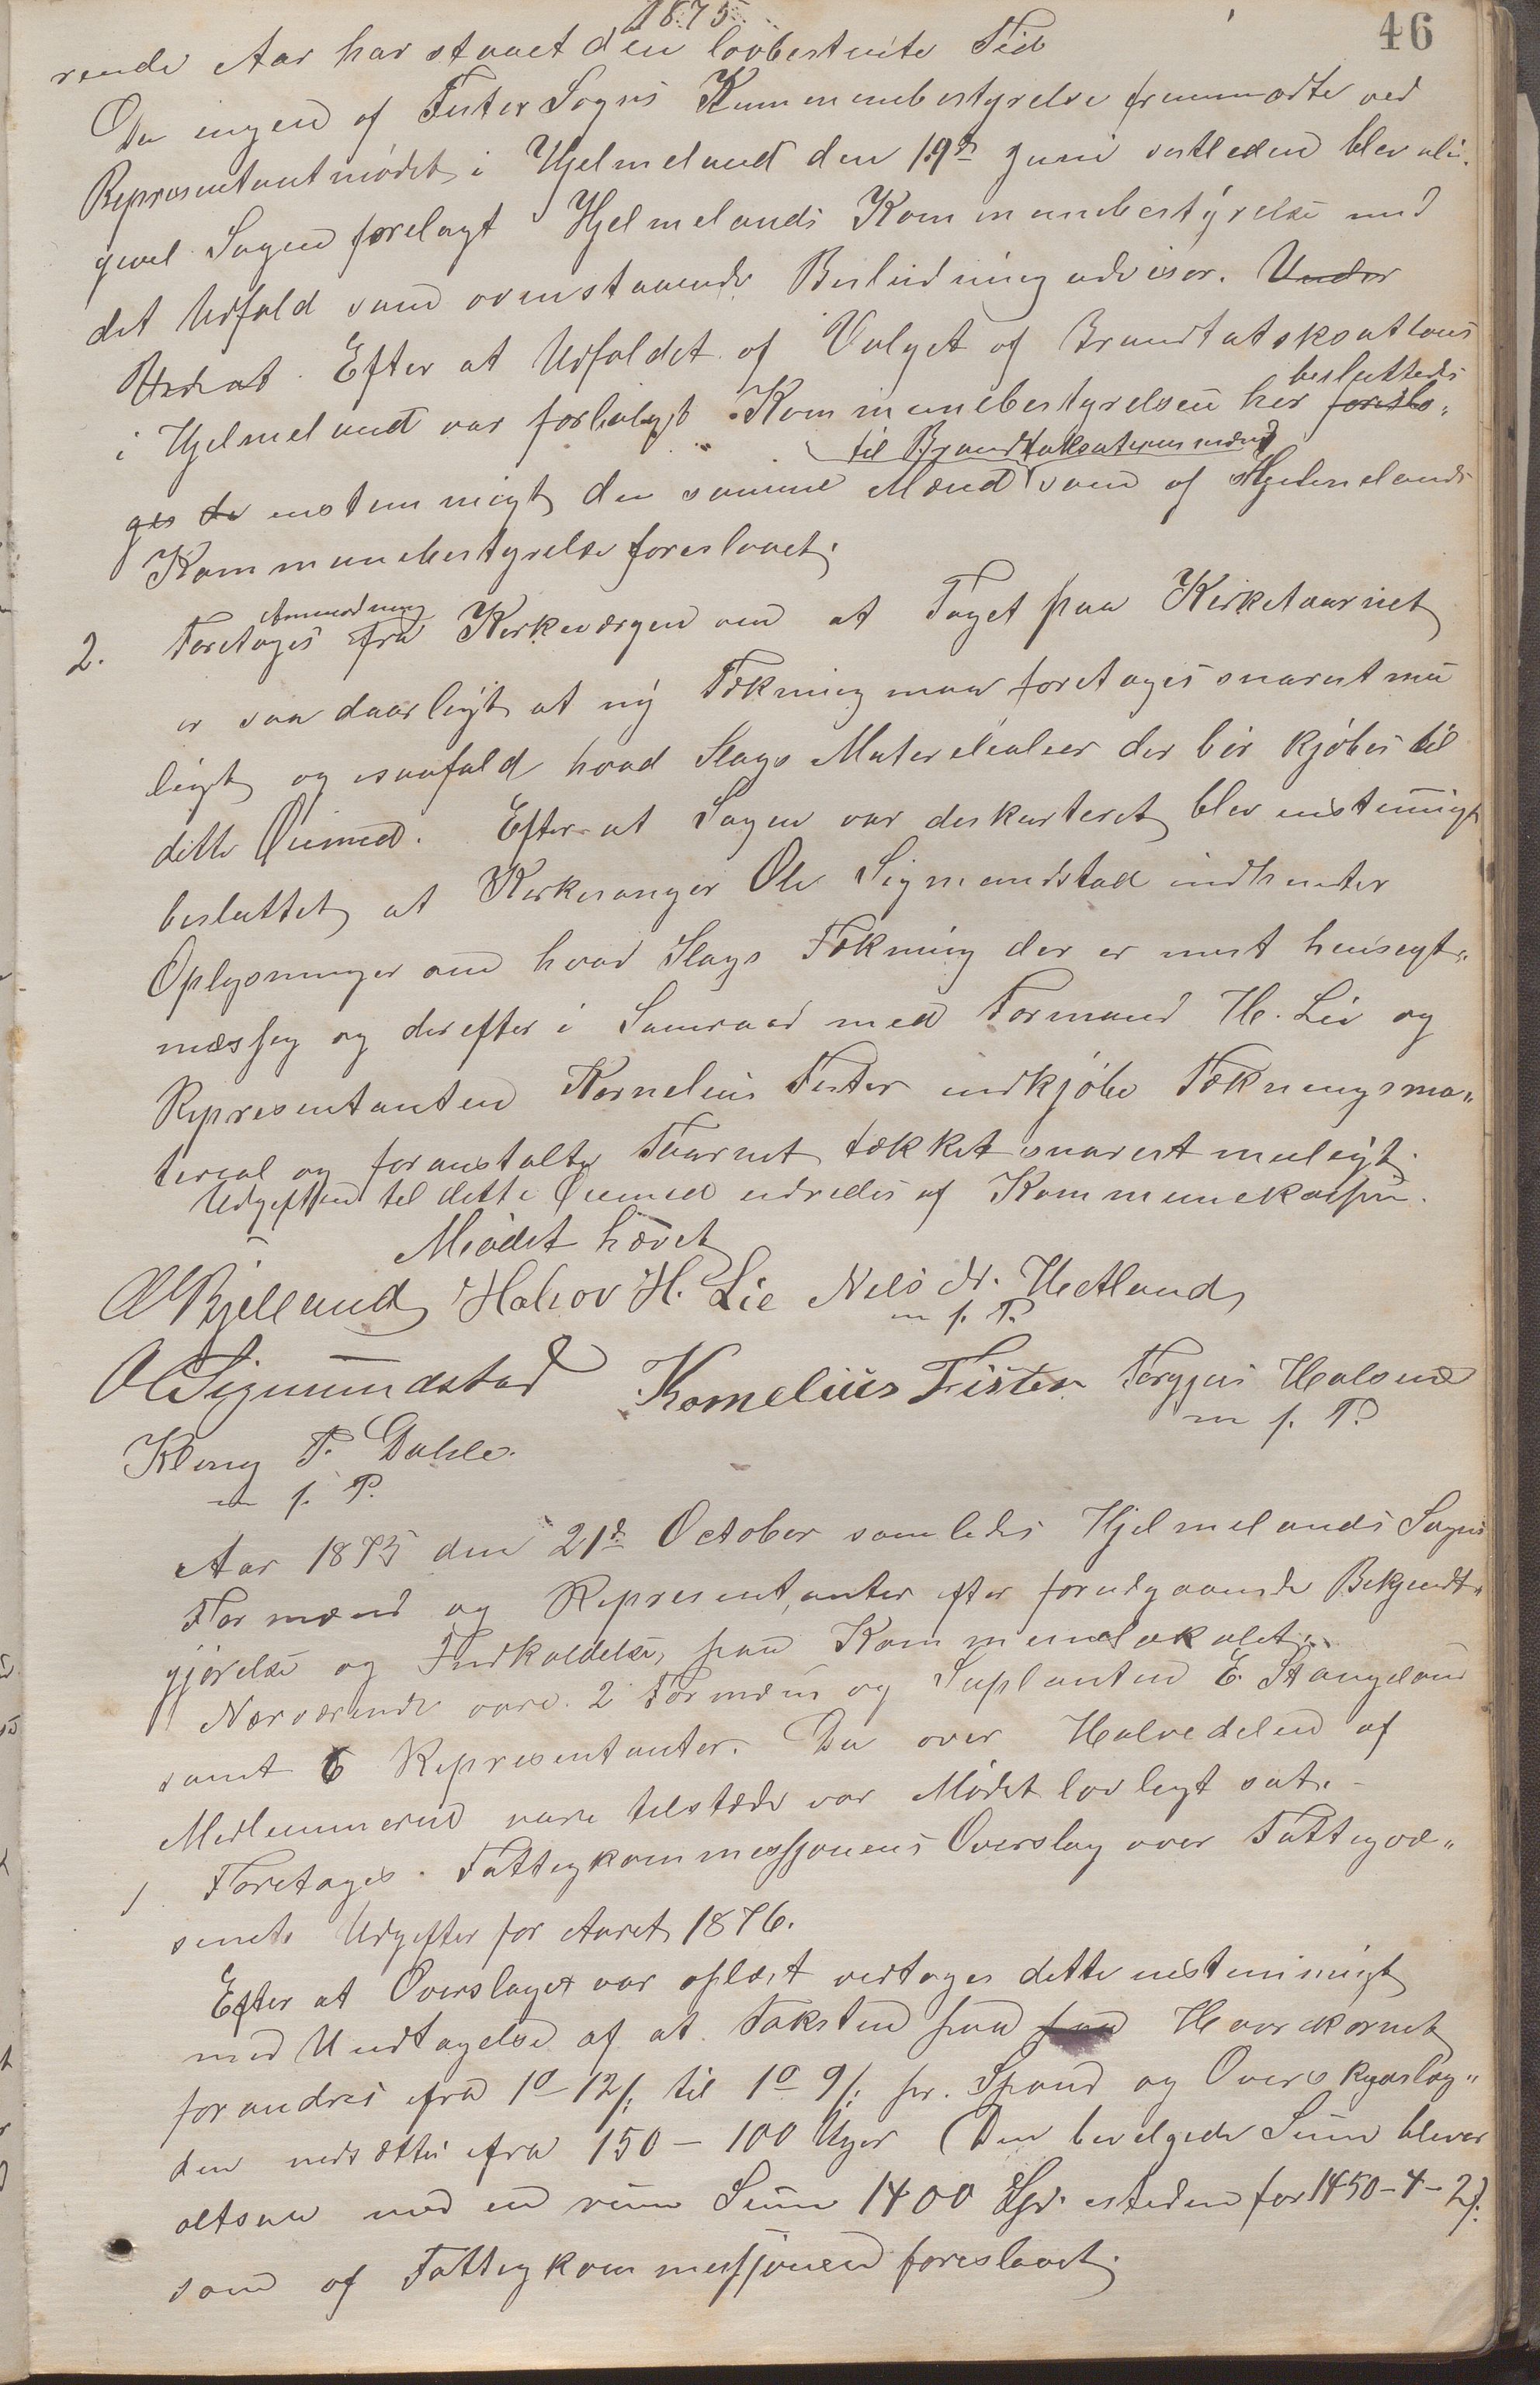 1875
46
rende Aar har staaet den lovbestemte Tid
Da ingen af Fister Sogns Kommunebestyrelse fremmødte ved
Representantmødet i Hjelmeland den 19de Juni sidstleden blev ali„
gevel Sagen forelagt Hjelmelands Kommunebestyrelse med
det Udfald som ovenstaaende Beslutning udviser. Under
Efter at Udfaldet af Valget af Brandtatsksations
i Hjelmeland var forelagt Kommunebestyrelsen her foreslo„ besluttedes
ges de enstemmigt de samme Mænd til Brandtaksationsmænd som af Hjelmelands
Kommunebestyrelse foreslaaet.
2. Foretoges Anmodning fra Kirkeværgen om at Taget paa Kirketaarnet
er saa daarligt at ny Tækning maa foretages snarest mu
ligt og isaafald hvad Slags Materialier der bør kjøbes til
dette Øiemed. Efter at Sagen var deskuteret blev enstemigt
besluttet at Kirkesanger Ole Sigmundstad indhenter
Oplysninger om hvad Slags Tækning der er mest hensigt„
mæssig og derefter i Samraad med Formand H. Lie og
Representanten Kornelius Fister indkjøbe Tækningsma„
terial og foranstalte Taarnet tækket snarest muligt.
Udgiften til dette Øiemed udredes af Kommunekassen.
Mødet hævet
Bjelland Halvor H. Lie Nils N. Hetland
m. p. P.
O Sigmundstad Kornelius Fister Torgjus Halsne
m p. P.
Kleng P. Dahle.
m p. P.
Aar 1875 den 21de October samledes Hjelmelands Sogns
Formænd og Representanter efter forudgaaende Bekjendt„
gjørelse og Indkaldelse paa Kommunelokalet.
Nærværende vare 2 Formænd og Suplanten E. Stangeland
samt 6 Representanter. Da over Halvedelen af
Medlemmerne vare tilstæde var Mødet lovligt sat.
1 Foretages Fattigkommissjonens Overslag over Fattigvæ„
senets Udgifter for Aaret 1876.
Efter at Overslaget var oplæst vedtoges dette enstemmigt
med Undtagelse af at Taksten paa paa Havrekornet
forandres fra 1o 12/. til 1o 9/. pr. Spand og Overskydslæg„
den nedsættes fra 150 – 100 Uger (Den bevilgede Sum bliver
altsaa med en rund Sum 1400 Spd. istedenfor 1450–4–2/.
som af Fattigkommissjonen foreslaaet.